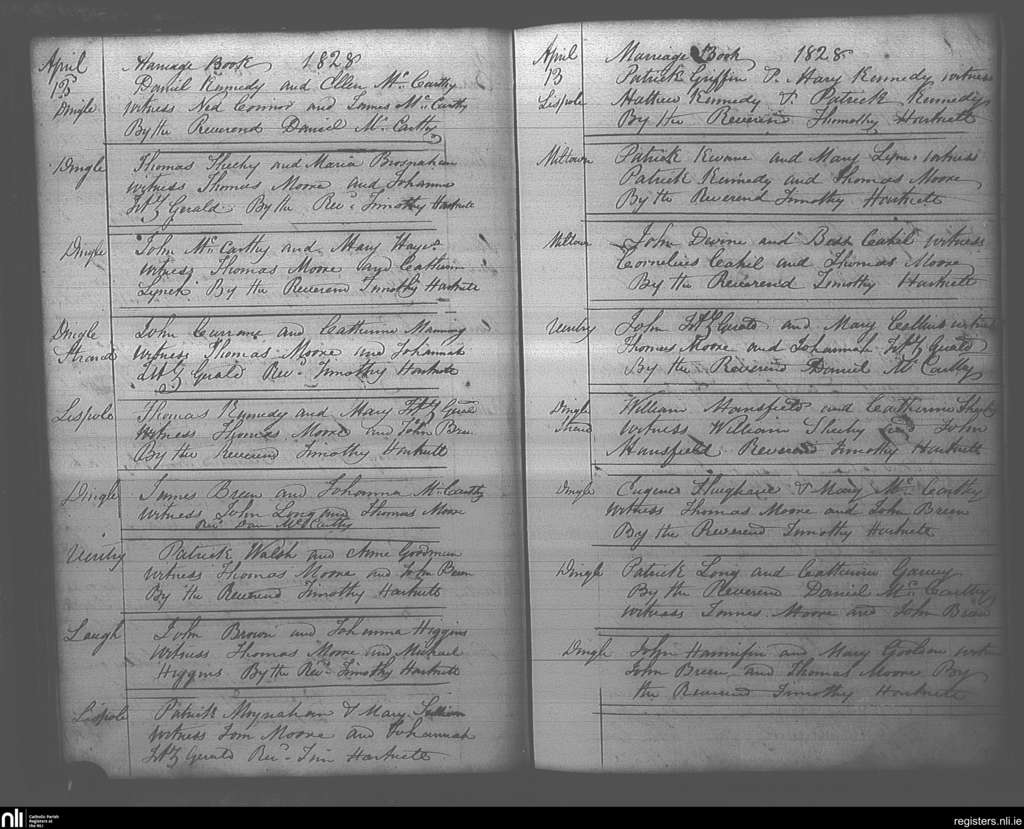 April Marriage Book 1828
13
Dingle Daniel Kennedy and Ellen Mc. Carthy
witness Ned Connor and James Mc. Carthy
By the Reverend Daniel Mc. Carthy
Dingle Thomas Sheehy and Maria Brosnahan
witness Thomas Moore and Johanna
Fitz Gerald By the Revd. Timothy Hartnett
Dingle John Mc. Carthy and Mary Hayes
witness Thomas Moore and Catherin
Lynch By the Reverend Timothy Hartnett
Dingle John Currane and Catherine Manning
Strand witness Thomas Moore and Johannah
Fitz Gerald Revd. Timothy Hartnett
Lispole Thomas Kennedy and Mary Fitz
witness Thomas Moore and John Breen
By the Reverend Timothy Hartnett
Dingle James Breen and Johanna Mc. Carthy
witness John Long and Thomas Moore
Revd. Dan Mc. Carthy
Ventry Patrick Walsh and Anne Goodman
witness Thomas Moore and John Breen
By the Reverend Timothy Hartnett
Laugh John Brown and Johanna Higgins
witness Thomas Moore and Michael
Higgins By the Revd. Timothy Hartnett
Lispole Patrick Moynahan & Mary
witness Tom Moore and Johannah
Fitz Gerald Revd. Tim Hartnett
April Marriage Book 1828
13 Patrick Griffin & Mary Kennedy witness
Lispole Mathew Kennedy & Patrick Kennedy
By the Reverend Thomothy Hartnett
Miltown Patrick Kevane and Mary Lyne witness
Patrick Kennedy and Thomas Moore
By the Reverend Timothy Hartnett
Miltown John Devine and Bess Cahel witness
Cornelius Cahel and Thomas Moore
By the Reverend Timothy Hartnett
Ventry John Fitz Gerald and Mary witness
Thomas Moore and Johannah Fitz Gerald
By the Reverend Daniel Mc. Carthy
Dingle William Mansfield and Catherine Sheehy
Strand witness William Sheehy and John
Mansfield Reverend Timothy Hartnett
Dingle Eugene & Mary Mc. Carthy
witness Thomas Moore and John Breen
By the Reverend Timothy Hartnett
Dingle Patrick Long and Catherine Garvey
By the Reverend Daniel Mc. Carthy
witness Tomas Moore and John Breen
Dingle John Hannifin and Mary witness
John Breen and Thomas Moore By
the Reverend Timothy Hartnett
nli Catholic Parish
Registers at
the NLI
registers.nli.ie